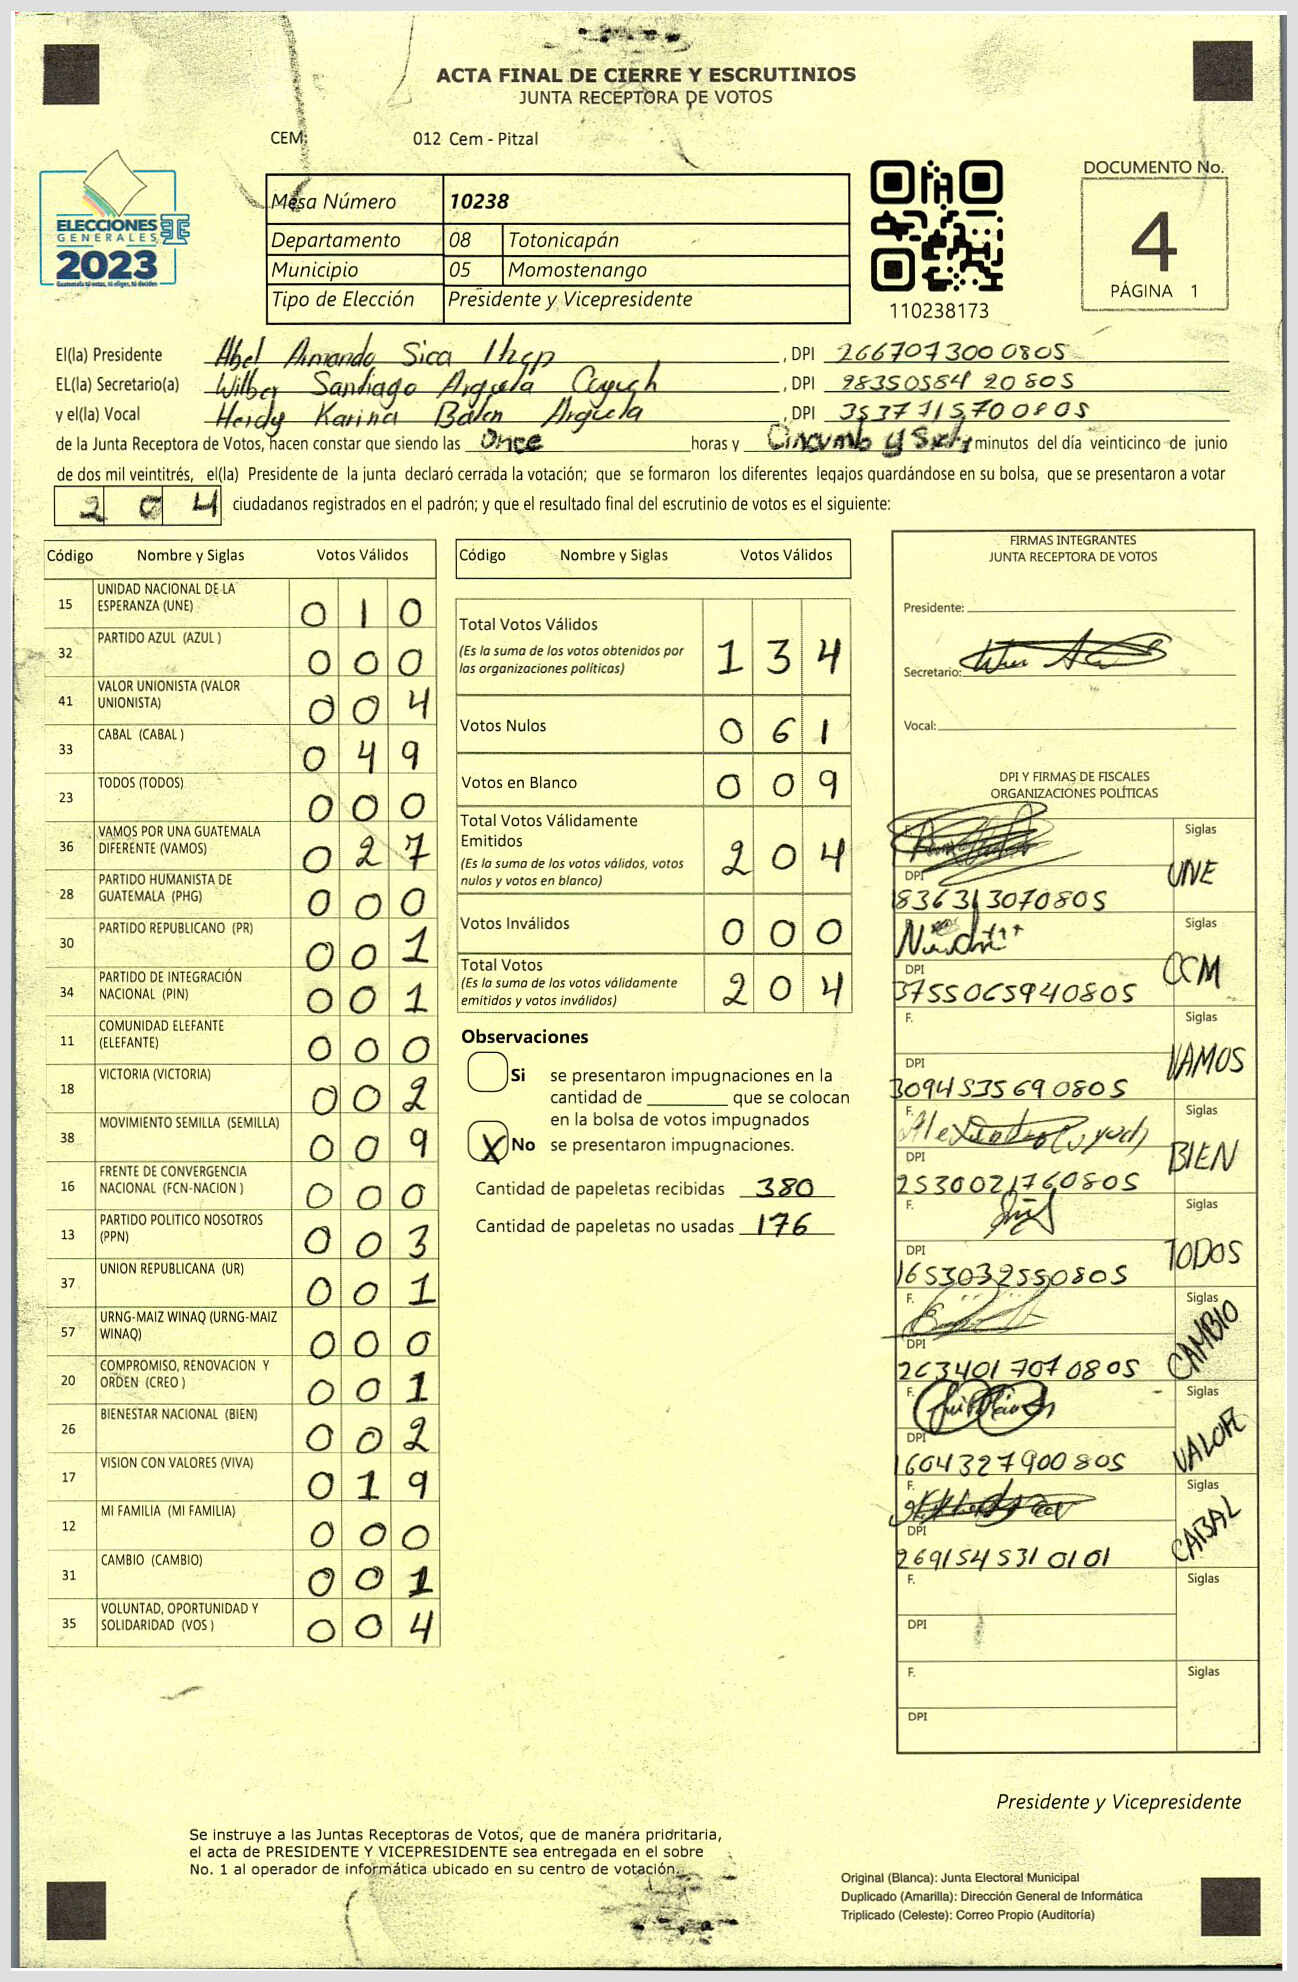 ACTA FINAL DE CIERRE Y ESCRUTINIOS
JUNTA RECEPTORA DE VOTOS
CEM: 012 Cem - Pitzal
ELECCIONES
GENERALES
2023
Guatemala tú votas, tú eliges, tú decides
Mesa Número 10238
Departamento 08 Totonicapán
Municipio 05 Momostenango
Tipo de Elección Presidente y Vicepresidente
110238173
DOCUMENTO No.
4
PÁGINA 1
El(la) Presidente Abel Armando Sica , DPI 2667073000805
EL(la) Secretario(a) Wilber Santiago Argueta , DPI 2835055420805
y el(la) Vocal Heidy Karina Batén Argueta , DPI 3537715700805
de la Junta Receptora de Votos, hacen constar que siendo las Once horas y minutos del día veinticinco de junio
de dos mil veintitrés, el(la) Presidente de la junta declaró cerrada la votación; que se formaron los diferentes legajos guardándose en su bolsa, que se presentaron a votar
2 0 4 ciudadanos registrados en el padrón; y que el resultado final del escrutinio de votos es el siguiente:
Código Nombre y Siglas Votos Válidos
15 UNIDAD NACIONAL DE LA ESPERANZA (UNE) 0 1 0
32 PARTIDO AZUL (AZUL ) 0 0 0
41 VALOR UNIONISTA (VALOR UNIONISTA) 0 0 4
33 CABAL (CABAL ) 0 4 9
23 TODOS (TODOS) 0 0 0
36 VAMOS POR UNA GUATEMALA DIFERENTE (VAMOS) 0 2 7
28 PARTIDO HUMANISTA DE GUATEMALA (PHG) 0 0 0
30 PARTIDO REPUBLICANO (PR) 0 0 1
34 PARTIDO DE INTEGRACIÓN NACIONAL (PIN) 0 0 1
11 COMUNIDAD ELEFANTE (ELEFANTE) 0 0 0
18 VICTORIA (VICTORIA) 0 0 2
38 MOVIMIENTO SEMILLA (SEMILLA) 0 0 9
16 FRENTE DE CONVERGENCIA NACIONAL (FCN-NACION ) 0 0 0
13 PARTIDO POLITICO NOSOTROS (PPN) 0 0 3
37 UNION REPUBLICANA (UR) 0 0 1
57 URNG-MAIZ WINAQ (URNG-MAIZ WINAQ) 0 0 0
20 COMPROMISO, RENOVACION Y ORDEN (CREO ) 0 0 1
26 BIENESTAR NACIONAL (BIEN) 0 0 2
17 VISION CON VALORES (VIVA) 0 1 9
12 MI FAMILIA (MI FAMILIA) 0 0 0
31 CAMBIO (CAMBIO) 0 0 1
35 VOLUNTAD, OPORTUNIDAD Y SOLIDARIDAD (VOS ) 0 0 4
Código Nombre y Siglas Votos Válidos
Total Votos Válidos 1 3 4
(Es la suma de los votos obtenidos por las organizaciones políticas)
Votos Nulos 0 6 1
Votos en Blanco 0 0 9
Total Votos Válidamente Emitidos 2 0 4
(Es la suma de los votos válidos, votos nulos y votos en blanco)
Votos Inválidos 0 0 0
Total Votos 2 0 4
(Es la suma de los votos válidamente emitidos y votos inválidos)
Observaciones
Si se presentaron impugnaciones en la
cantidad de ________ que se colocan
en la bolsa de votos impugnados
X No se presentaron impugnaciones.
Cantidad de papeletas recibidas 380
Cantidad de papeletas no usadas 176
FIRMAS INTEGRANTES
JUNTA RECEPTORA DE VOTOS
Presidente:
Secretario:
Vocal:
DPI Y FIRMAS DE FISCALES
ORGANIZACIONES POLÍTICAS
F. Siglas
DPI UNE
1836313070805
Siglas
DPI CCM
3755065940805
F. Siglas
DPI VAMOS
3094535690805
F. Siglas
DPI BIEN
2530021760805
F. Siglas
DPI TODOS
1653032550805
F. Siglas
DPI CAMBIO
2634017070805
F. Siglas
DPI VALOR
1604327900805
F. Siglas
DPI CABAL
2691545310101
F. Siglas
DPI
F. Siglas
DPI
Presidente y Vicepresidente
Se instruye a las Juntas Receptoras de Votos, que de manera prioritaria,
el acta de PRESIDENTE Y VICEPRESIDENTE sea entregada en el sobre
No. 1 al operador de informática ubicado en su centro de votación.
Original (Blanca): Junta Electoral Municipal
Duplicado (Amarilla): Dirección General de Informática
Triplicado (Celeste): Correo Propio (Auditoría)